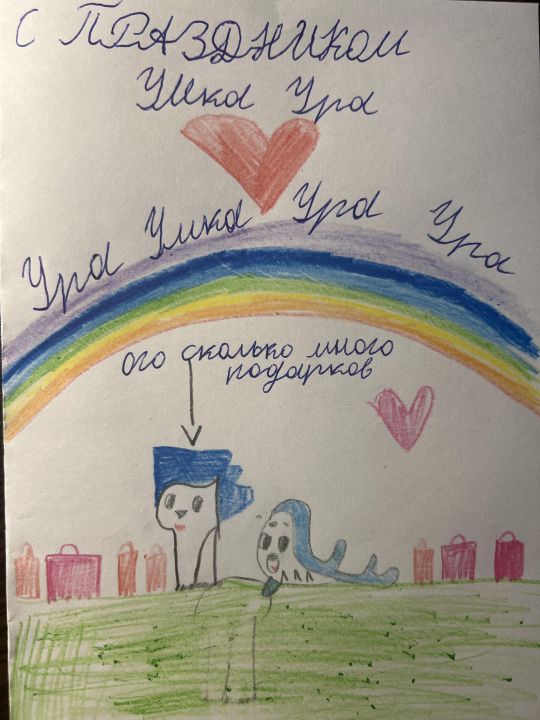 С ПРАЗДНИКОМ
Умка Ура
Ура Умка Ура Ура
ого сколько много
подарков